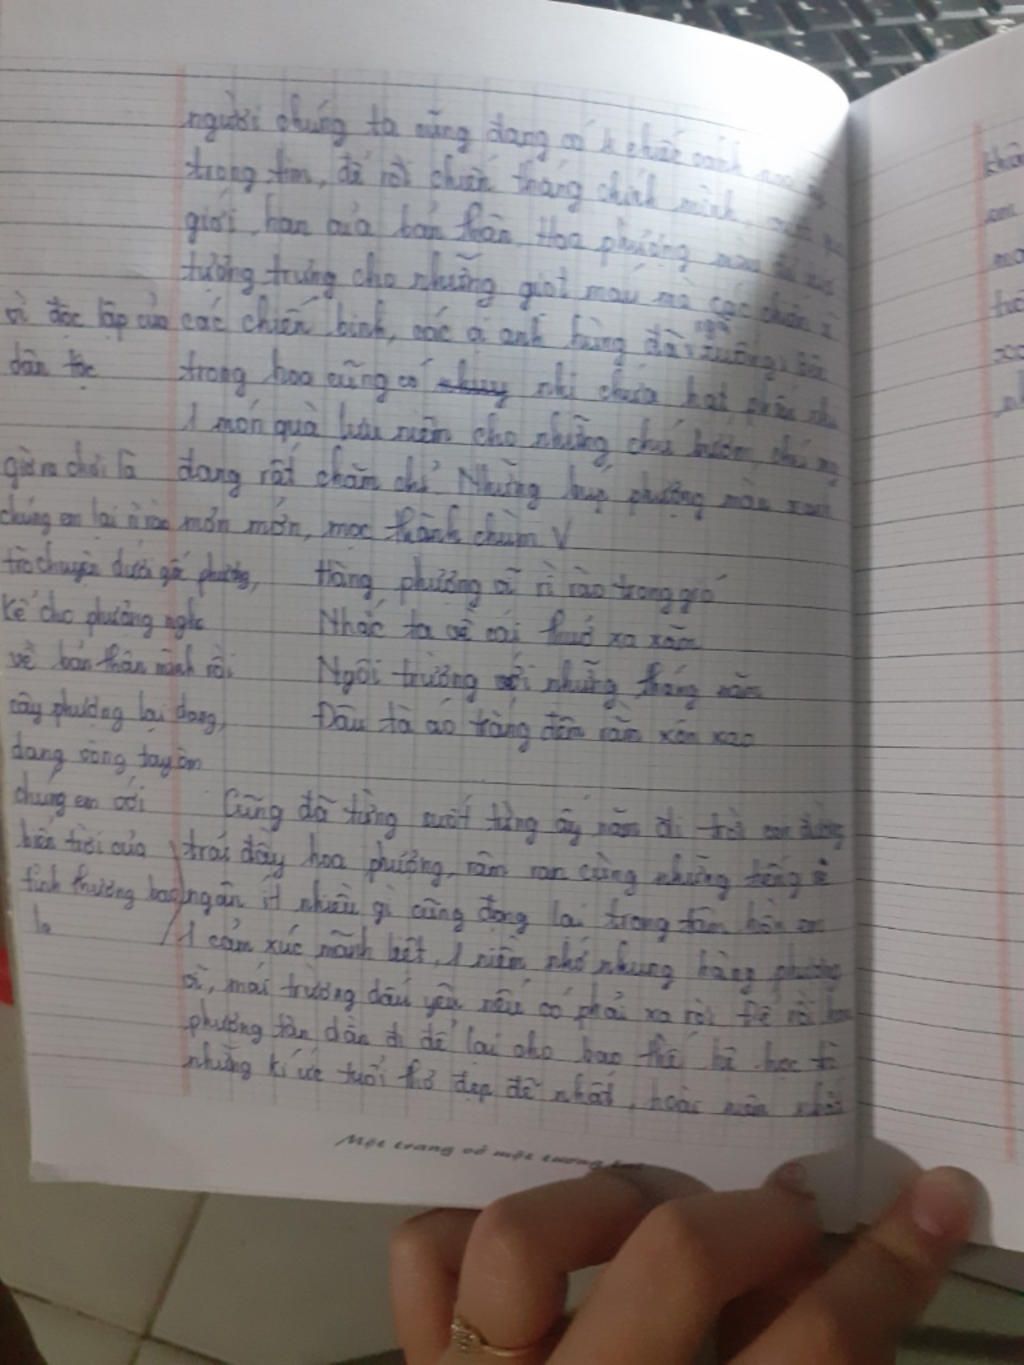 người chúng ta cũng đang có 1 chiếc
trong tim, để rồi chiến thắng chính mình,
giới hạn của bản thân. Hoa phượng màu
tượng trưng cho những giọt máu mà các chiến sĩ
các chiến binh, các vị anh hùng đã ngã xuống, Bên
vì độc lập của
dân tộc
trong hoa cũng có nhị chứa hạt phấn như
1 món quà lưu niệm cho những chú bướm, chú ong
đang rất chăm chỉ. Những búp phượng màu xanh
mơn mởn, mọc thành chùm V
giờ ra chơi là
chúng em lại rì rào
trò chuyện dưới gốc phượng,
kể cho phượng nghe
về bản thân mình rồi
cây phượng lại dang,
dang vòng tay ôm
chúng em với
biển trời của
tình thương bao
la
Hàng phượng vĩ rì rào trong gió
Nhắc ta về cái thuở xa xăm
Ngôi trường với những tháng năm
Đâu tà áo trắng đêm rằm xôn xao
Cũng đã từng suốt từng ấy năm đi trời con đường
trải đầy hoa phượng, râm ran cùng những tiếng ve
ngân ít nhiều gì cũng đọng lại trong tâm hồn em
1 cảm xúc mãnh liệt, 1 niềm nhớ nhung hàng phượng
vĩ, mái trường dấu yêu nếu có phải xa rời. Để rồi hoa
phượng tàn dần đi để lại cho bao thế hệ học trò
những kí ức tuổi thơ đẹp đẽ nhất, hoài niệm nhất
Một trang vở một tương lai